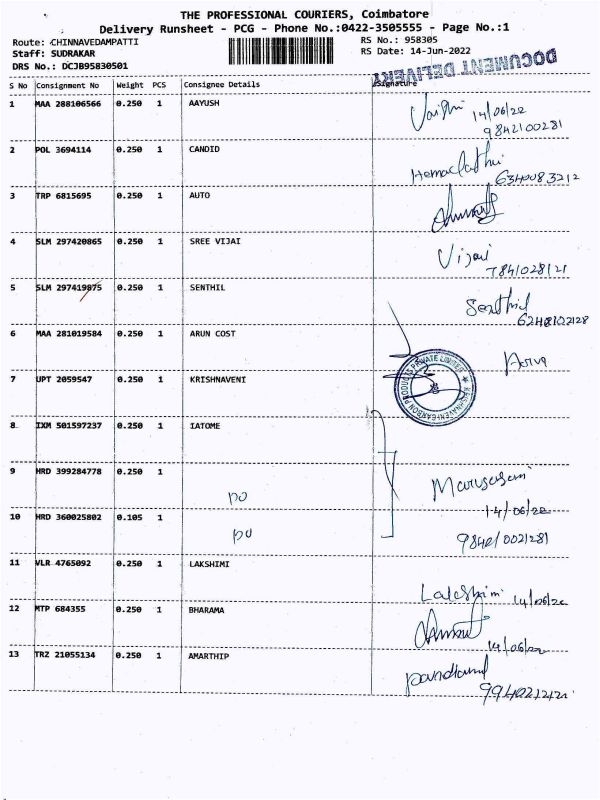 THE PROFESSIONAL COURIERS, Coimbatore
Delivery Runsheet - PCG - Phone No.:0422-3505555 - Page No.:1
Route: CHINNAVEDAMPATTI
RS No.: 958305
Staff: SUDRAKAR
RS Date: 14-Jun-2022
DRS No.: DCJB95830501
DOCUMENT DELIVERY
S No Consignment No Weight PCS Consignee Details Signature
1 MAA 288106566 0.250 1 AAYUSH
14/06/22
9842100281
2 POL 3694114 0.250 1 CANDID
Hemalatha
6340083212
3 TRP 6815695 0.250 1 AUTO
4 SLM 297420865 0.250 1 SREE VIJAI
Vijai
7841028121
5 SLM 297419875 0.250 1 SENTHIL
Senthil
6248102128
6 MAA 281019584 0.250 1 ARUN COST
7 UPT 2059547 0.250 1 KRISHNAVENI
KRISHNAVENI CARBON PRODUCTS PRIVATE LIMITED
8 IXM 501597237 0.250 1 IATOME
9 HRD 399284778 0.250 1
PO
14/06/22
10 HRD 360025802 0.105 1
PO
11 VLR 4765092 0.250 1 LAKSHIMI
Lakshimi 14/06/22
12 MTP 684355 0.250 1 BHARAMA
14/06/22
13 TRZ 21055134 0.250 1 AMARTHIP